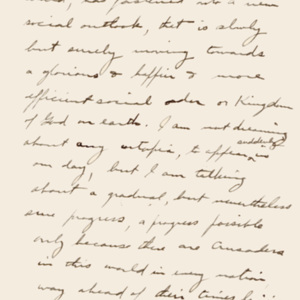 has fastened into a new
social outlook, that is slowly
but surely moving towards
a glorious & happier & more
efficient social order or Kingdom
of God on earth. I am not dreaming
about any utopia, to appear suddenly in
our day, but I am talking
about a gradual, but nevertheless
sure progress, a progress possible
only because there are Crusaders
in this world in every nation
way ahead of their times